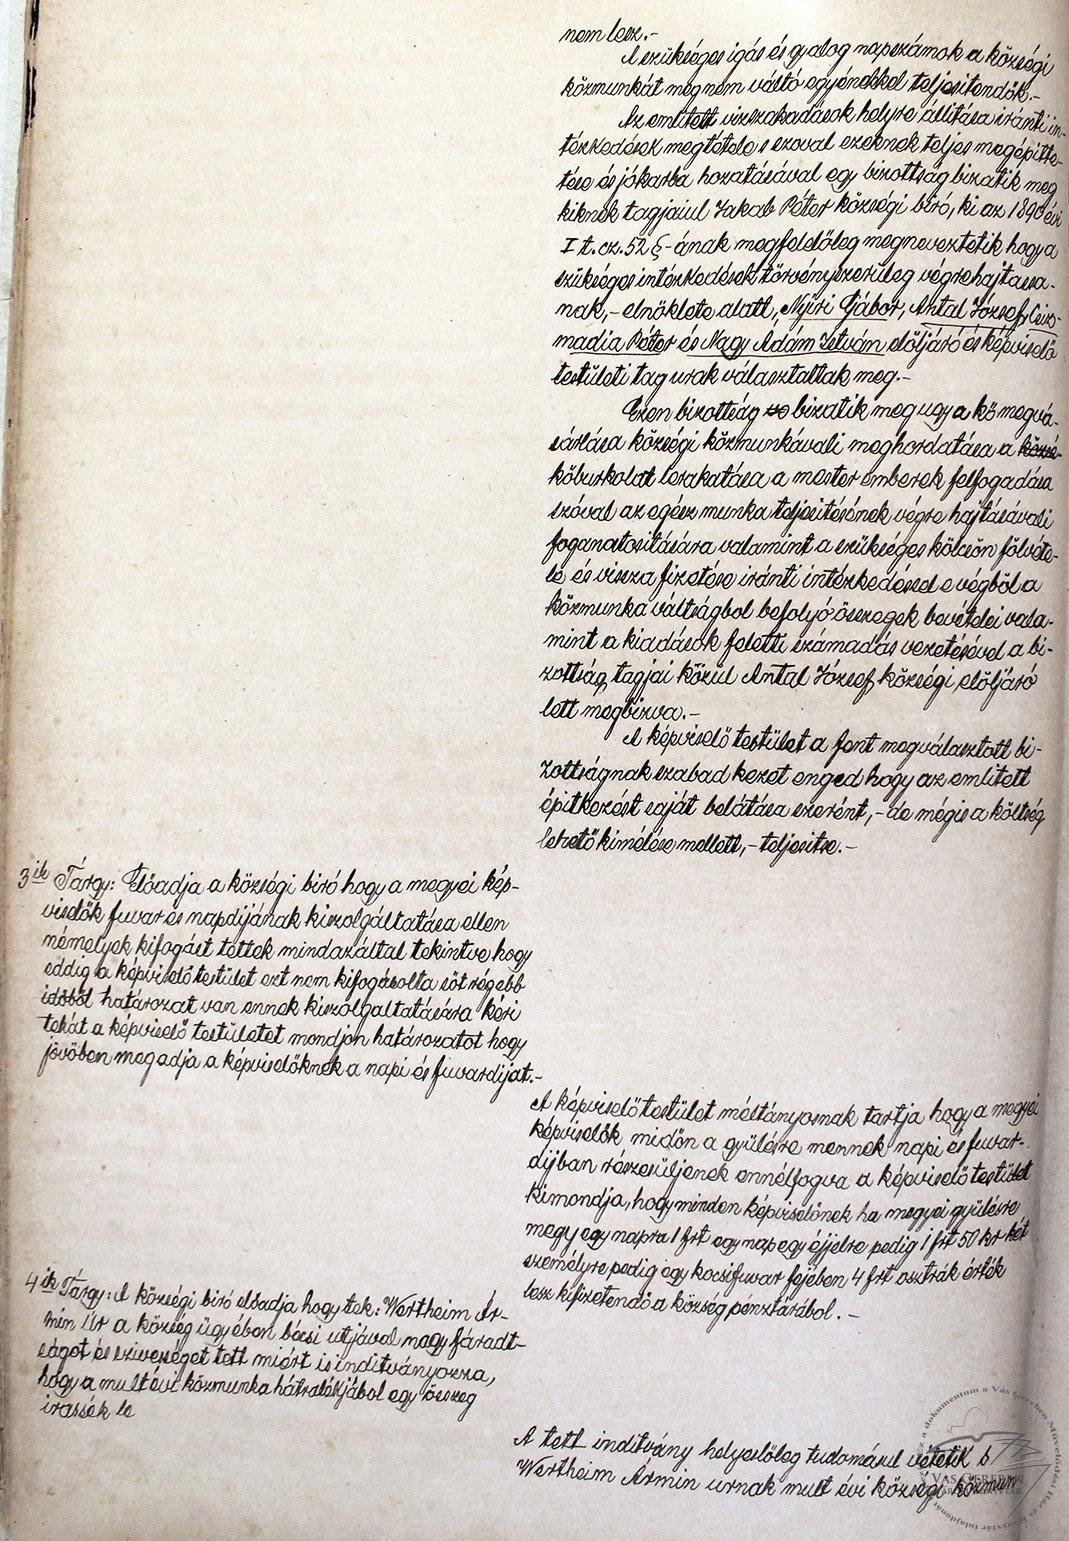 nem lesz.-
A szükséges igás és gyalog napszámok a községi
közmunkát meg nem váltó egyénekkel teljesitendők.-
Az emlitett vizszakadások helyre állitása iránti in-
tézkedések megtétele s szoval ezeknek teljes megépitte-
tése és jókarba hozatásával egy bizottság bizatik meg
kiknek tagjaiul Jakab Péter községi biró, ki az 1890 évi
I t. cz. 52 §-ának megfelelőleg megneveztetik hogy a
szükséges intézkedések törvényszerüleg végrehajtasa-
nak,- elnöklete alatt, Nyiri Gábor, Antal József, Csiz-
madia Péter és Nagy Ádám István előljáró és képviselő
testületi tag urak választattak meg.-
Ezen bizottság bizatik meg ugy a kő megvá-
sárlása községi közmunkávali meghordatása a közsé-
kőburkolat lerakatása a mester emberek felfogadása
szóval az egész munka teljesitésének végre hajtásávali
foganatositására valamint a szükséges kölcsön fölvéte-
le és vissza fizetése iránti intézkedéssel e végből a
közmunka váltságbol befolyó összegek bevételei vala-
mint a kiadások feletti számadás vezetésével a bi-
zottság tagjai közül Antal József községi előljáró
lett megbizva.-
A képviselő testület a fent megválasztott bi-
zottságnak szabad kezet enged hogy az emlitett
épitkezést saját belátása szerént,- de mégis a költség
lehető kimélése mellett,- teljesitse.-
3ik Tárgy: Előadja a községi biró hogy a megyei kép-
viselők fuvar és napdijának kiszolgáltatása ellen
némelyek kifogást tettek mindazáltal tekintve hogy
eddig a képviselő testület ezt nem kifogásolta sőt régebb
időből határozat van ennek kiszolgaltatására kéri
tehát a képviselő testületet mondjon határozatot hogy
jövőben megadja a képviselőknek a napi és fuvardijat.-
A képviselő testület méltányosnak tartja hogy a megyei
képviselők midőn a gyülésre mennek napi és fuvar-
dijban részesüljenek ennélfogva a képviselő testület
kimondja, hogy minden képviselőnek ha megyei gyülésre
megy egy napra 1 frt egy nap egy éjjelre pedig 1 frt 50 kr két
személyre pedig egy kocsifuvar fejében 4 frt osztrák érték
lesz kifizetendő a község pénztárábol.-
4ik Tárgy: A községi biró előadja hogy tek: Wertheim Ár-
min Ur a község ügyében bécsi utjával nagy fáradt-
ságot és szivességet tett miért is inditványozza,
hogy a mult évi közmunka hátralékjábol egy összeg
irassék le
A tett inditvány helyeslőleg tudomásul vétetik s
Wertheim Ármin urnak mult évi községi közmun